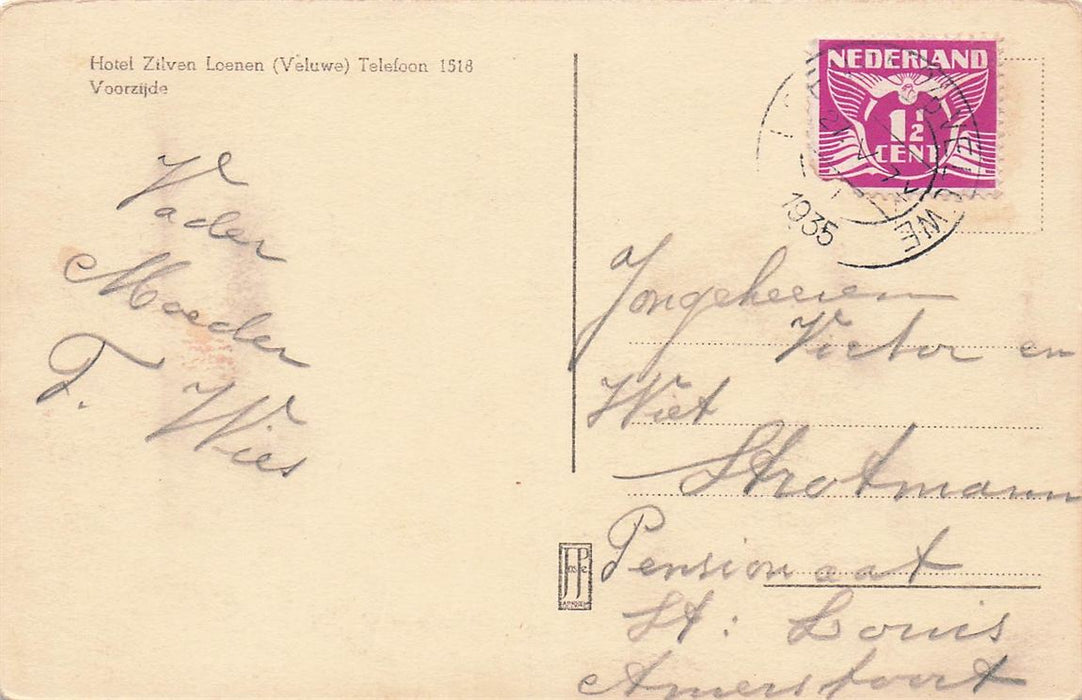 Hotel Zilven Loenen (Veluwe) Telefoon 1518
Voorzijde
Vader
Moeder
T. Wies
NEDERLAND
1½
CENT
1935
Jongeheeren
Victor en
Wiet
Strotmann
Pensionaat
St: Louis
Amersfoort
JP